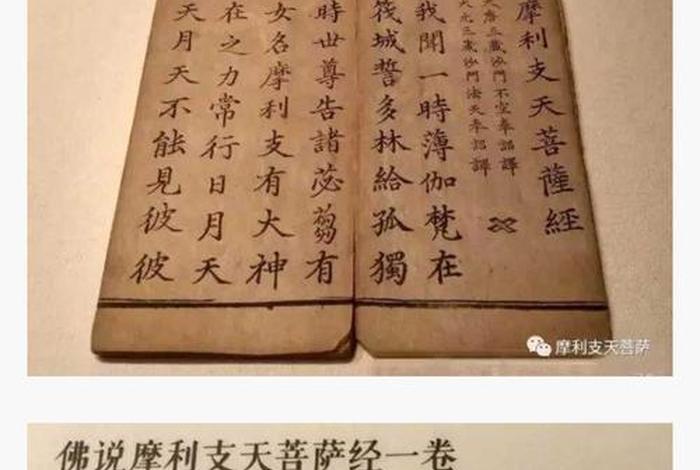 摩利支天菩薩經
大唐三藏沙門不空奉詔譯
大元三藏沙門法天奉詔譯
我聞一時薄伽梵在
筏城誓多林給孤獨
時世尊告諸苾芻有
女名摩利支有大神
在之力常行日月天
天月天不能見彼彼
摩利支天菩萨
佛说摩利支天菩萨经一卷